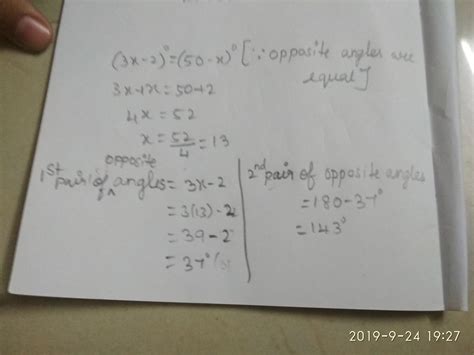 (3x-2)° = (50-x)° [∵ opposite angles are equal]
3x+x = 50+2
4x = 52
x = 52/4 = 13
1st pair of opposite angles = 3x-2
= 3(13)-2
= 39-2
= 37°
2nd pair of opposite angles
= 180-37°
= 143°
2019-9-24 19:27